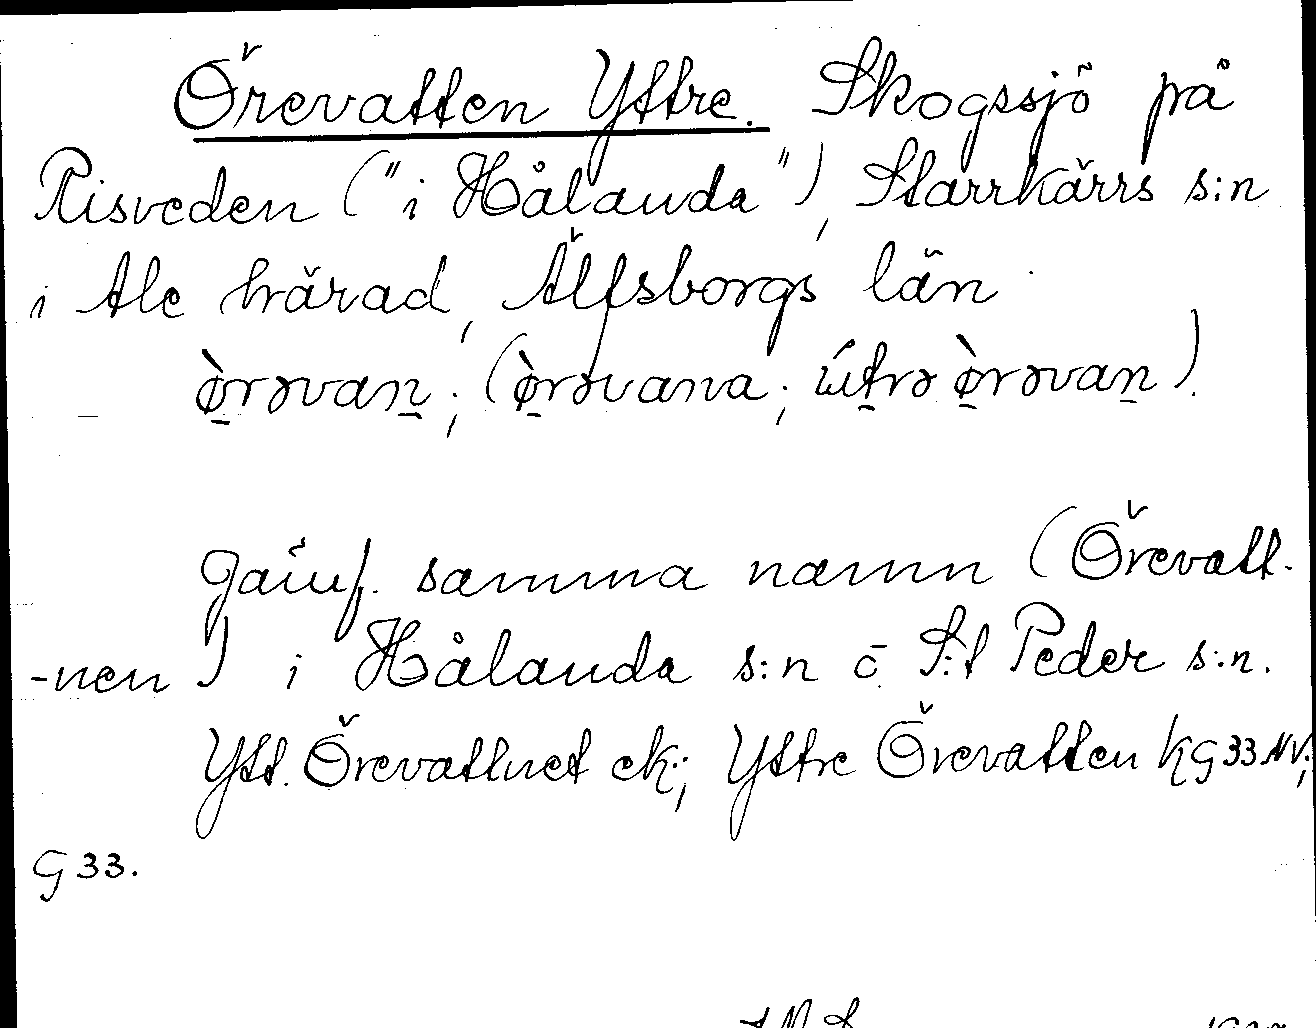 Örevatten Yttre. Skogssjö på
Risveden ("i Hålanda"), Starrkärrs s:n
i Ale härad, Älfsborgs län
ø̱̀rəvaṉ; (ø̱̀rəvana; ẃt̠rə ø̱̀rəvaṉ).
Jämf. samma namn (Örevatt-
-nen) i Hålanda s:n o. S:t Peder s:n.
Ytt. Örevattnet ek.; Yttre Örevatten KG33NV;
G33.